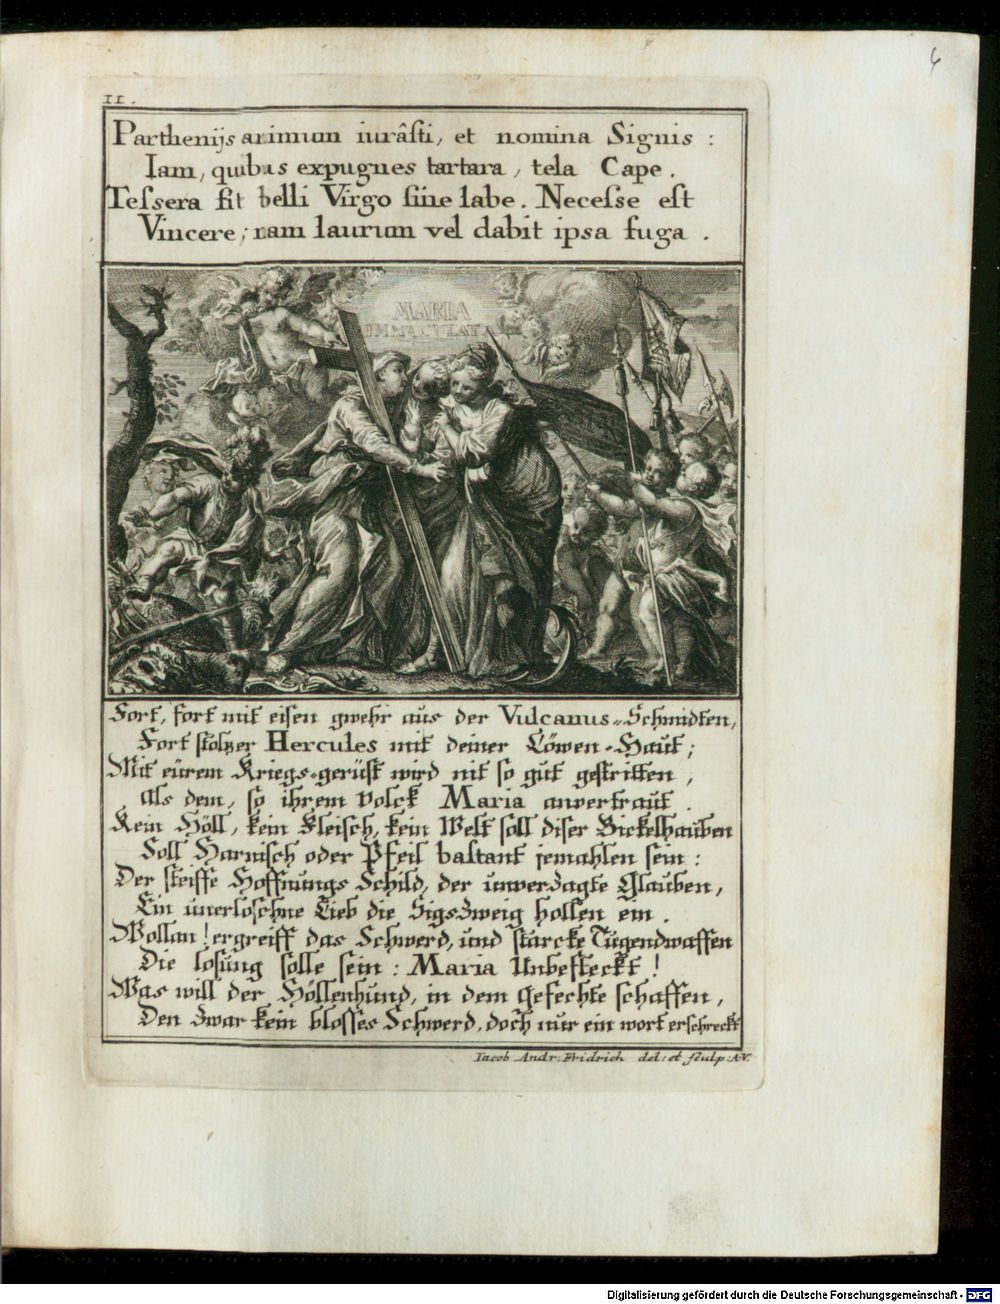 6
II.
Parthenijs animum iurâsti, et nomina Signis:
Iam, quibus expugnes tartara, tela Cape.
Tessera sit belli Virgo sine labe. Necesse est
Vincere; nam laurum vel dabit ipsa fuga.
MARIA
IMMACULATA
Fort, fort mit eisen gwehr aus der Vulcanus-Schmidten,
Fort stoltzer Hercules mit deiner Löwen-Haut;
Mit eürem Kriegs-gerüst wird nit so gut gestritten,
Als dem, so ihrem Volck Maria anvertraut.
Kein Höll, kein Fleisch, kein Welt soll diser Bickelhauben
Soll Harnisch oder Pfeil bastant jemahlen sein:
Der steiffe Hoffnungs Schild, der unverzagte Glauben,
Ein unerloschne Lieb die Sigszweig hollen ein.
Wollan! ergreiff das Schwerd, und starcke Tugendwaffen
Die losung solle sein: Maria Unbefleckt!
Was will der Höllenhund, in dem gefechte schaffen,
Den zwar kein blosses Schwerd, doch nur ein wort erschreckt
Iacob Andr: Fridrich del: et sculp: A.V.
Digitalisierung gefördert durch die Deutsche Forschungsgemeinschaft - DFG